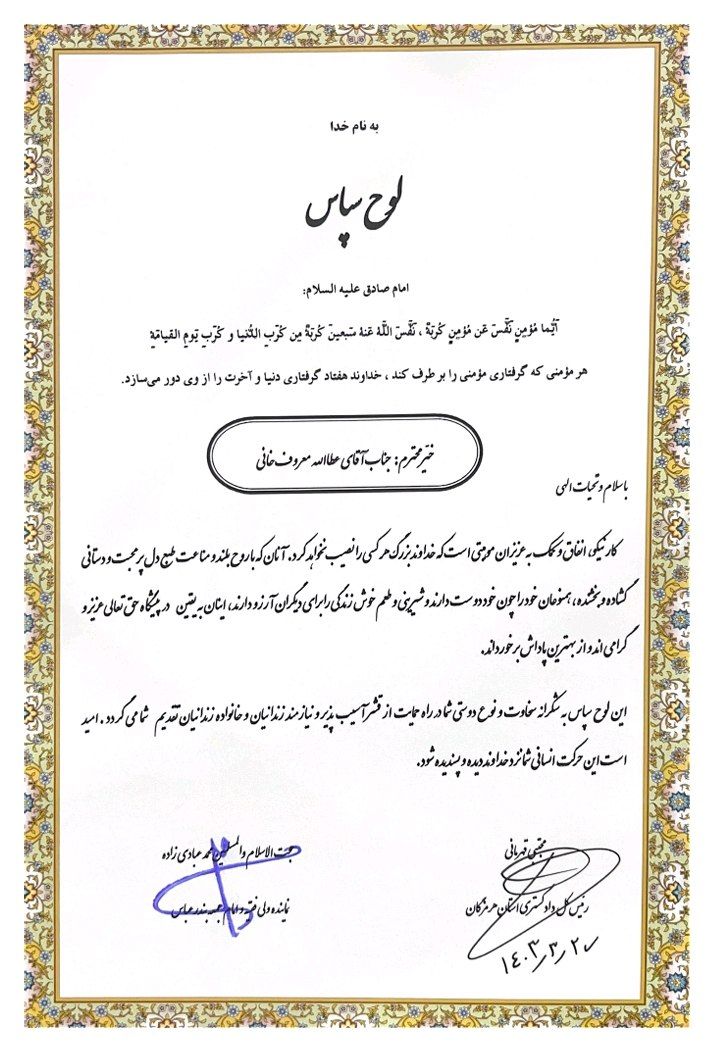 به نام خدا
لوح سپاس
امام صادق علیه السلام:
أیُّما مُؤمِنٍ نَفَّسَ عَن مُؤمِنٍ کُربَةً ، نَفَّسَ اللَّهُ عَنهُ سَبعینَ کُربَةً مِن کُرَبِ الدُّنیا و کُرَبِ یَومِ القیامَةِ
هر مؤمنی که گرفتاری مؤمنی را بر طرف کند ، خداوند هفتاد گرفتاری دنیا و آخرت را از وی دور می‌سازد.
خیّر محترم: جناب آقای عطاالله معروف خانی
با سلام و تحیات الهی
کار نیکو، انفاق و کمک به عزیزان موهبتی است که خداوند بزرگ هر کسی را نصیب نخواهد کرد. آنان که با روح بلند و مناعت طبع دل پر محبت و دستانی
گشاده و بخشنده، همنوعان خود را چون خود دوست دارند و شیرینی و طعم خوش زندگی را برای دیگران آرزو دارند، اینان به یقین در پیشگاه حق تعالی عزیز و
گرامی اند و از بهترین پاداش برخورداند.
این لوح سپاس به شکرانه سخاوت و نوع دوستی شما در راه حمایت از قشر آسیب پذیر و نیازمند زندانیان و خانواده زندانیان تقدیم شما می گردد . امید
است این حرکت انسانی شما نزد خداوند دیده و پسندیده شود.
مجتبی قهرمانی
رئیس کل دادگستری استان هرمزگان
۱۴۰۳/۳/۲۰
حجت الاسلام والمسلمین محمد عبادی زاده
نماینده ولی فقیه و امام جمعه بندرعباس